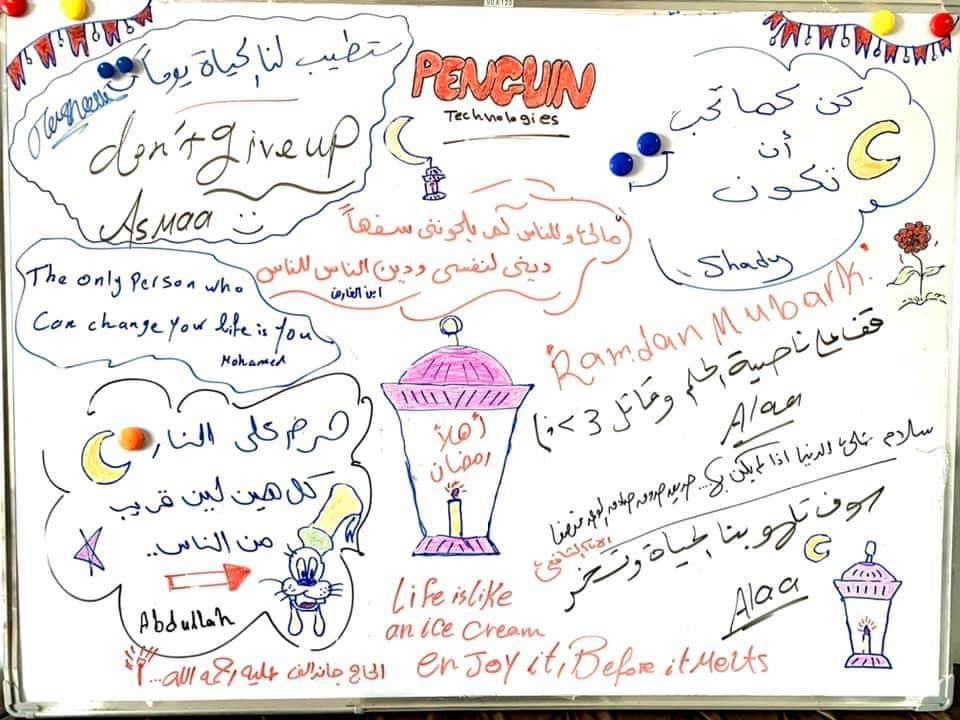 90X120
PENGUIN
Technologies
ستطيب لنا الحياة يوماً
don't give up
Asmaa
كن كما تحب
أن
تكون
Shady
مالي وللناس كم يلحونني سفهاً
ديني لنفسي ودين الناس للناس
ابن الفارض
The only Person who
Can change your life is you
Mohamed
Ramdan Mubark
قف على ناصية الحلم وقاتل 3>
Alaa
أهلاً
رمضان
حرم على النار
كل هين لين قريب
من الناس..
Abdullah
سلام على الدنيا اذا لم يكن بها... صديق صدوق صادق الوعد منصفا
الامام الشافعي
سوف تلهو بنا الحياة وتسخر
Alaa
Life is like
an ice cream
enJoy it, Before it Melts
الحاج جاندالف عليه رحمة الله...